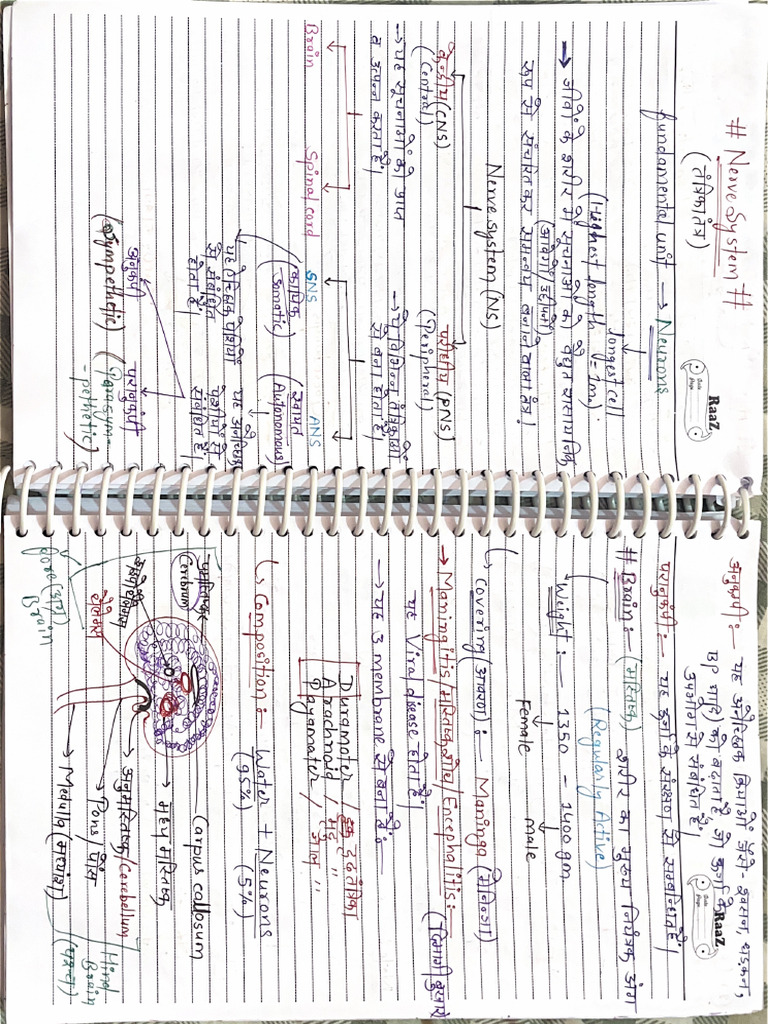 # Nerve System #
(तंत्रिका तंत्र)
RaaZ
Date
Page
fundamental unit → Neurons
longest cell
(Highest length l = 1m)
→ जीवों के शरीर में सूचनाओं को वैधुत रासायनिक
(आवेगों उद्दीपनों)
रूप से संचारित कर समन्वय बनाने वाला तंत्र।
Nerve System (NS)
केन्द्रीय (CNS)
(Central)
परिधीय (PNS)
(Peripheral)
→ यह सूचनाओं को प्राप्त
व उत्पन्न करता है।
→ ये विभिन्न तंत्रिकाओं
से बना होता है।
Brain
Spinal cord
SNS
ANS
(कायिक
Somatic)
(स्वायत्त
Autonomous)
यह ऐच्छिक पेशियों
से संबंधित
होता है।
यह अनैच्छिक
पेशियों से
संबंधित है।
अनुकंपी
(Sympethetic)
परानुकंपी
(Parasym-
-pethetic)
अनुकंपी:— यह अनैच्छिक क्रियाओं जैसे- श्वसन, धड़कन,
BP आदि को बढ़ाता है जो ऊर्जा के
उपभोग से संबंधित है।
RaaZ
Date
Page
परानुकंपी:— यह ऊर्जा के संरक्षण से सम्बन्धित है।
# Brain:— (मस्तिष्क) शरीर का मुख्य नियंत्रक अंग
(Regularly Active)
Wight:— 1350 - 1400 gm
Female male
↳ Covering (आवरण):— Maninga (मेनिन्जा)
→ Maningitis/मस्तिष्क शोध/Encephalitis: (दिमागी बुखार
यह Viral disease होता है।
→ यह 3 membrane से बना है:—
Duramater / दृढ़तानिका
Arachnoid / मृदु "
Payamater / जाल "
↳ Composition:— Water + Neurons
(95%) (5%)
प्रमस्तिष्क
Cerebrum
Carpus callosum
मध्य मस्तिष्क
अनुमस्तिष्क/Cerebellum
Pons/पोंस
Medulla (मध्यांश)
fore (अग्र)
Brain
Hind
Brain
(पश्च)